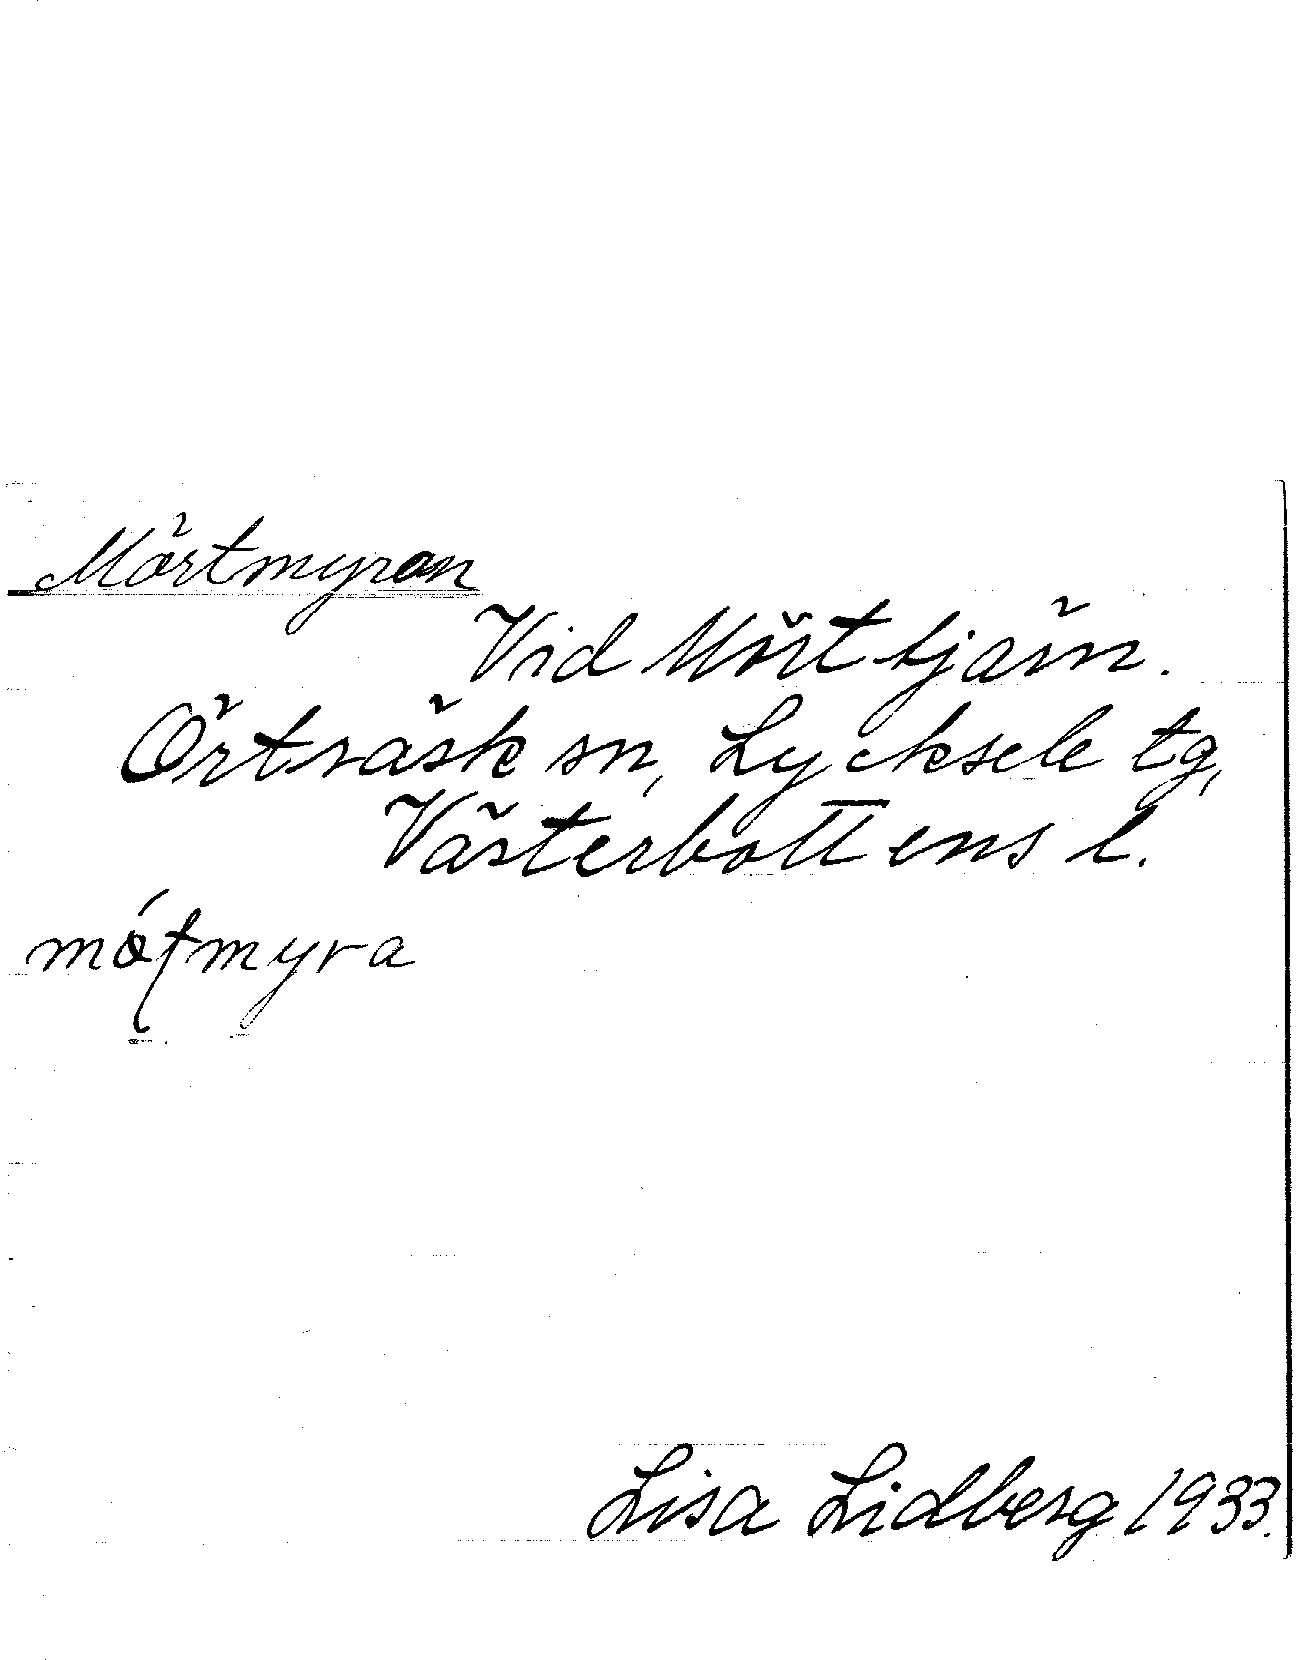 Mörtmyran
Vid Mörttjärn.
Örträsk sn, Lycksele tg,
Västerbottens l.
Lisa Lidberg 1933.